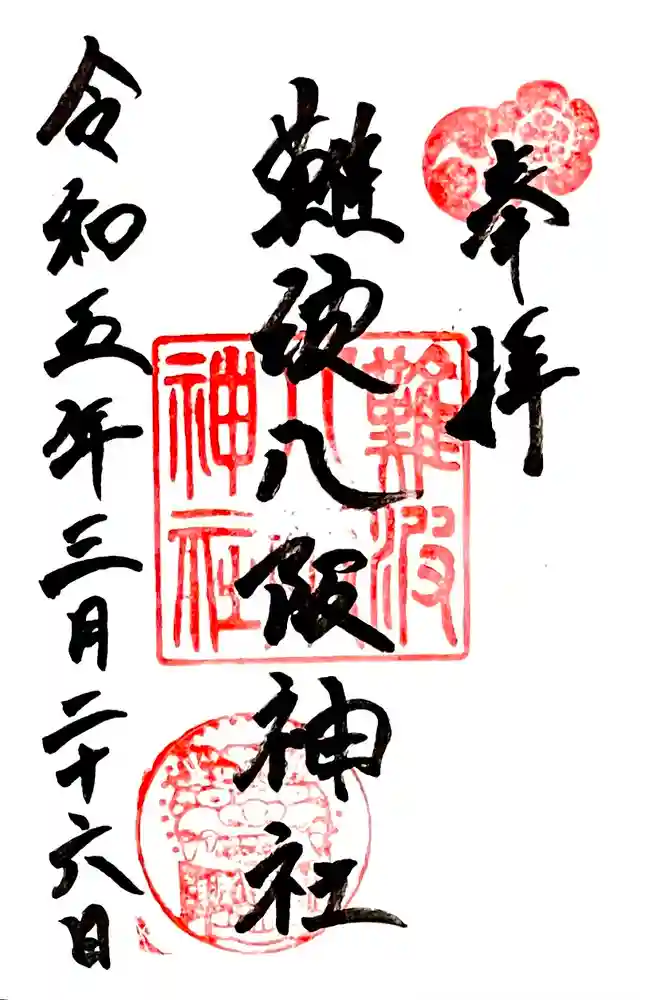 奉拝
難波八阪神社
令和五年三月二十六日
難波八阪神社